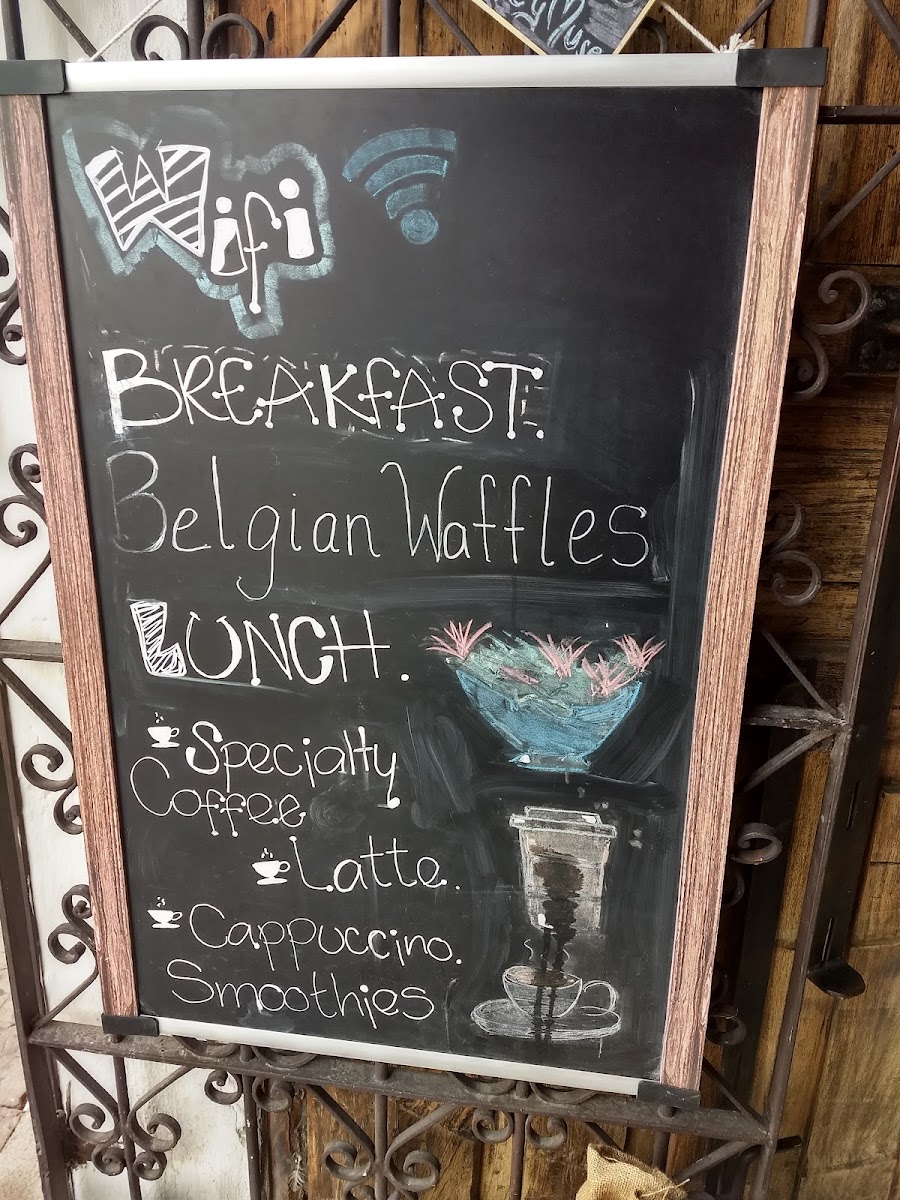 Wifi
BREAKFAST.
Belgian Waffles
LUNCH.
Specialty
Coffee
Latte.
Cappuccino.
Smoothies